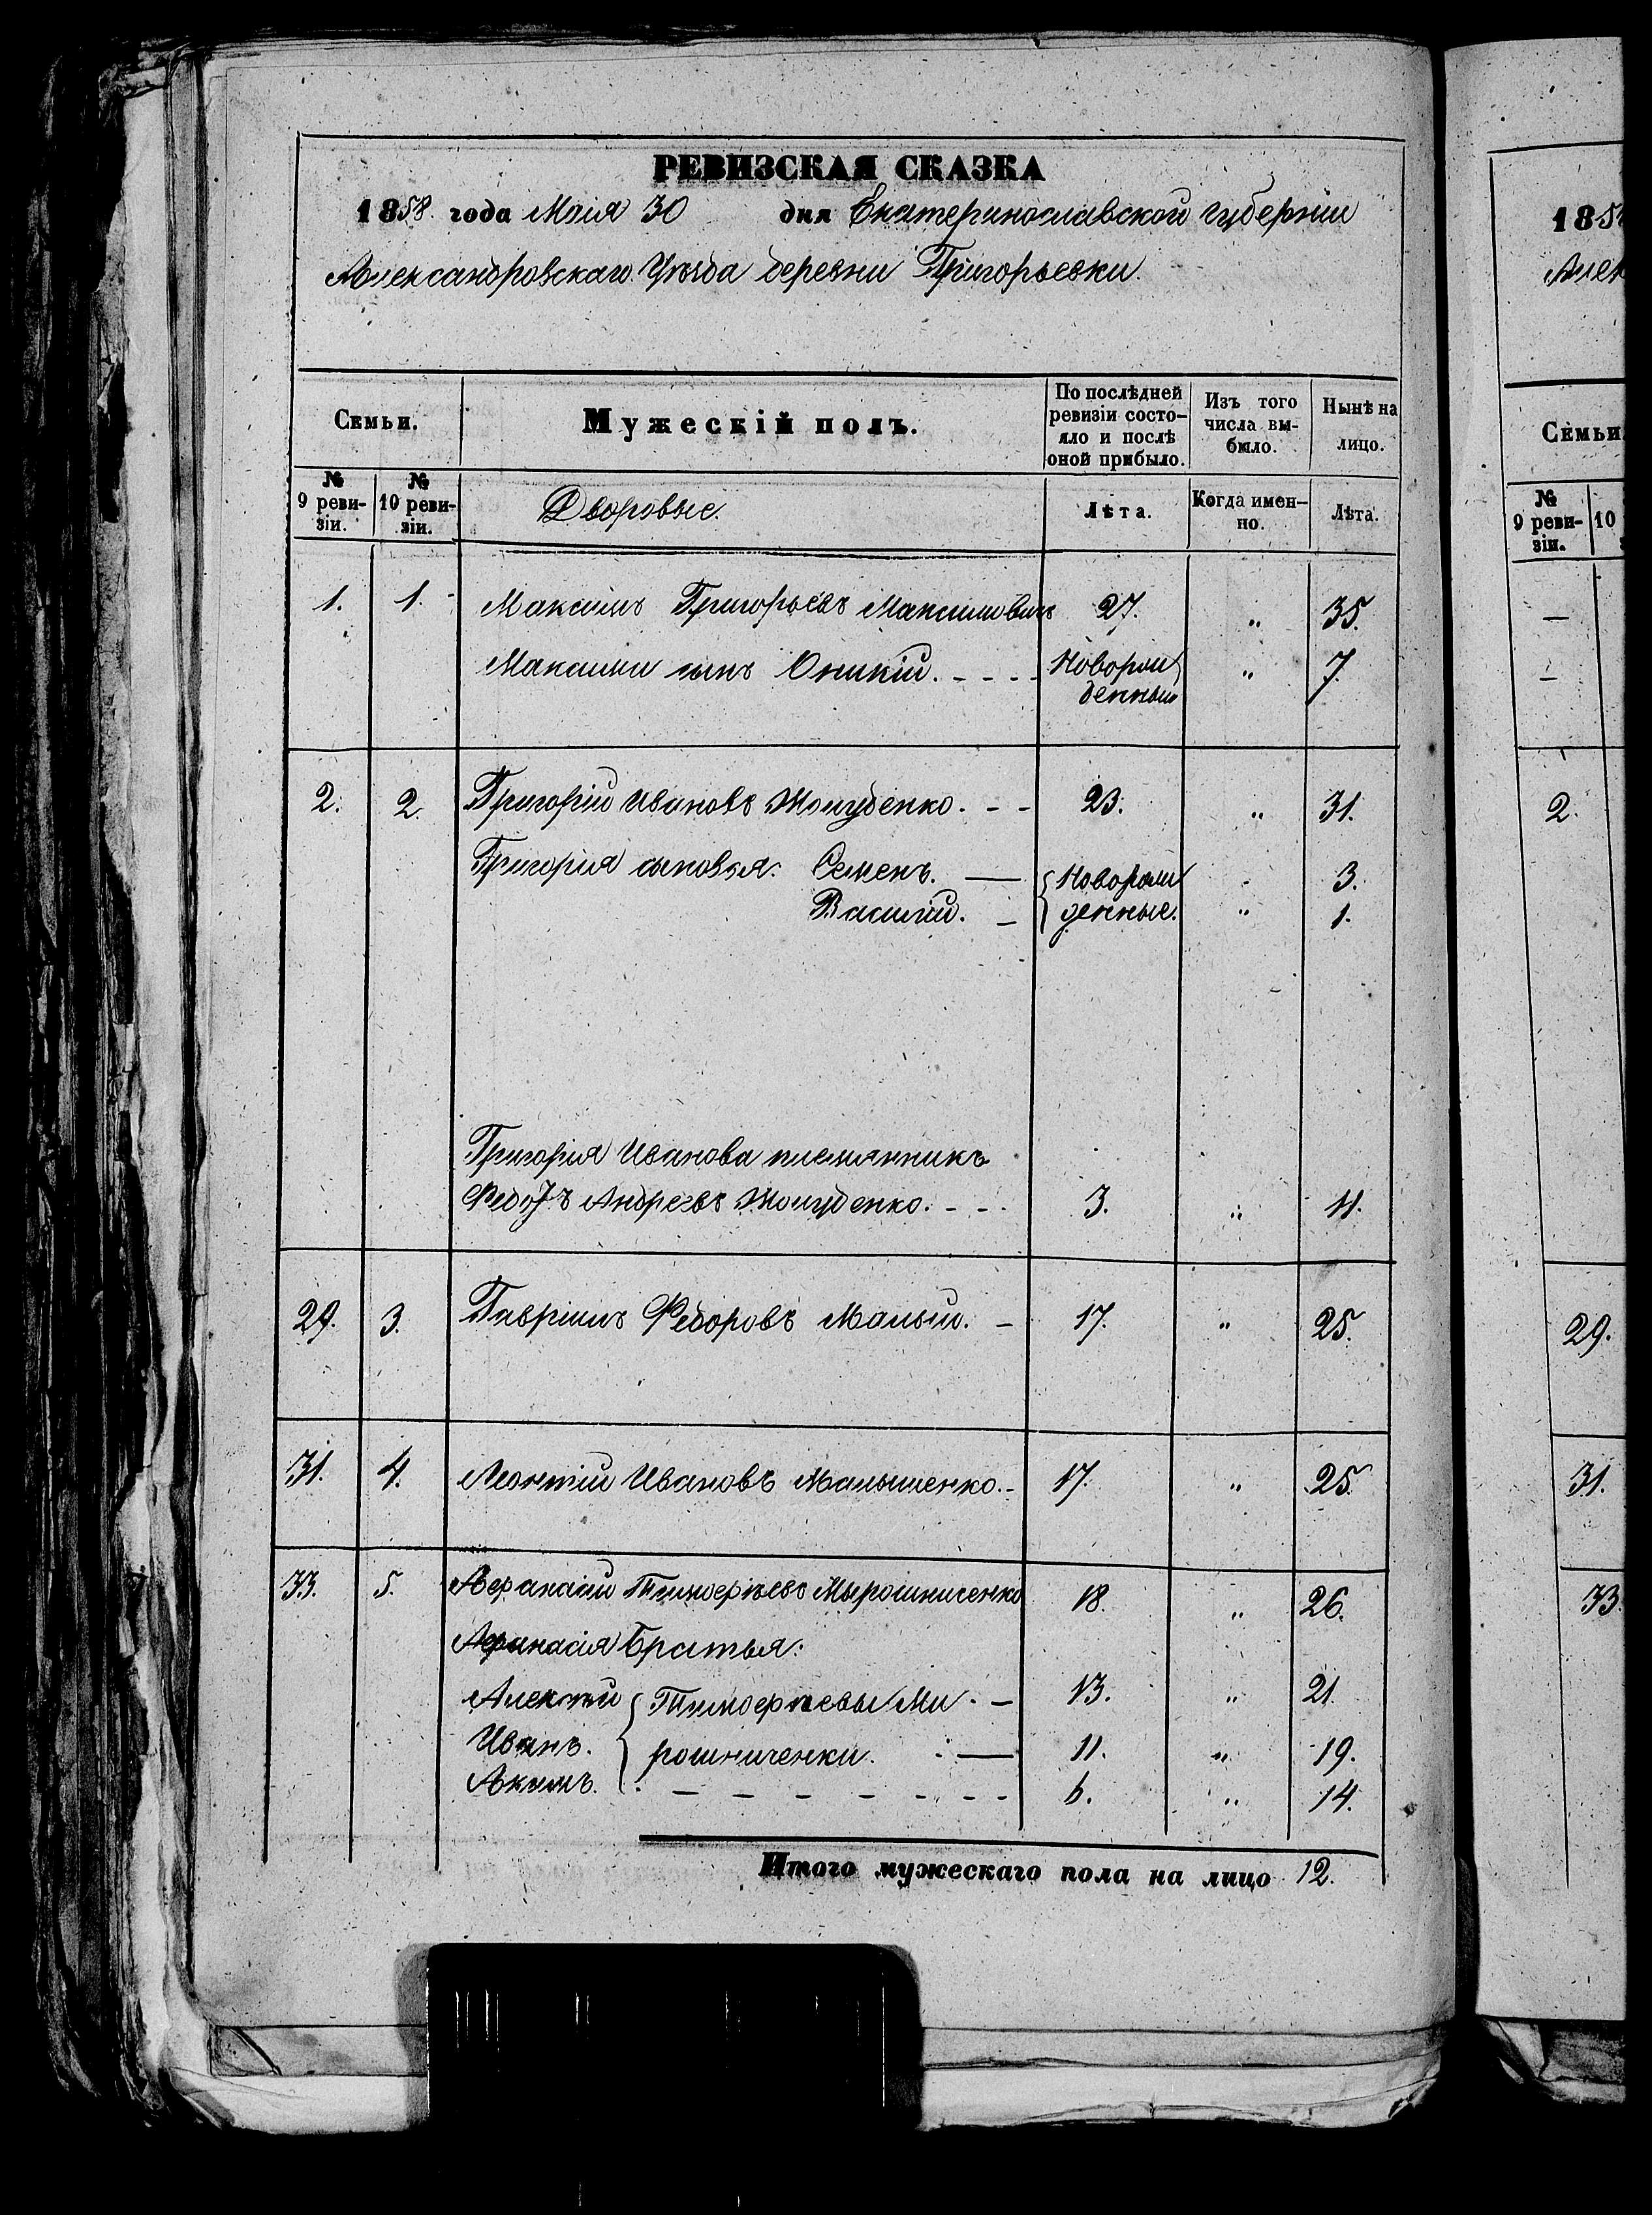 РЕВИЗСКАЯ СКАЗКА
1858 года Маія 30 дня Екатеринославской губерніи
Александровскаго Уѣзда деревни Григорьевки.
Семьи. Мужескій полъ. По послѣдней ревизіи состо- Изъ того Нынѣ на
яло и послѣ оной прибыло. числа вы-было. лицо.
№ 9 реви-зіи. № 10 реви-зіи. Дворовые. Лѣта. Когда имен-но. Лѣта.
1. 1. Максимъ Григорьевъ Максимовичъ 27. „ 35.
Максима сынъ Оникій. - - - - Новорож „ 7.
денный
2. 2. Григорій Ивановъ Жолуденко. - - 23. „ 31.
Григорія сыновья: Семенъ. — Новорож 3.
Василій. - денные. „ 1.
Григорія Иванова племянникъ
Федотъ Андреевъ Жолуденко. - - - 3. „ 11.
29. 3. Гавріилъ Федоровъ Малый. - 17. „ 25.
31. 4. Леонтій Ивановъ Малышенко. - 17. „ 25.
33. 5. Афанасій Тимофѣевъ Мырошниченко 18. „ 26.
Афанасія Братья:
Алексѣй Тимофѣевы Ми - 13. „ 21.
Иванъ. рошниченки. — 11. „ 19.
Акимъ. - - - - - - - - 6. „ 14.
Итого мужескаго пола на лицо 12.
185
Алек
Семьи
№ 9 реви-зіи. 10
—
—
2.
29.
31.
33.